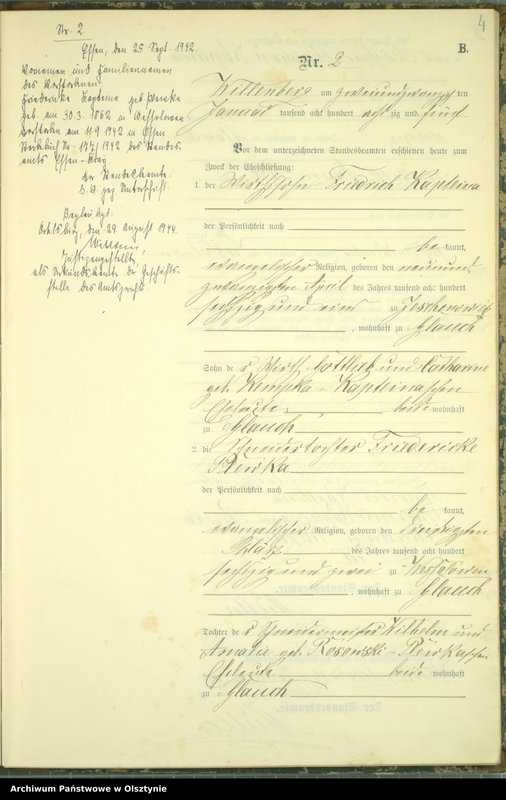 4
B.
Nr. 2
Essen, den 25 Sept. 1942
Vornamen und Familiennamen
des Verstorbenen:
Friedericke Kapteina geb. Pewka
geb. am 30.3.1862 in
gestorben am 11.9.1942 in Essen
Sterbebuch Nr. 177/1942 des Standes-
amts Essen-
Der Standesbeamte.
D. B. gez. Unterschrift.
Beglaubigt:
Ortelsburg, den 29. August 1944.
Justizangestellte,
als Urkundsbeamte der Geschäfts-
stelle des Amtsgerichts
Nr. 2
Wittenberg am zweiundzwanzigsten
Januar tausend acht hundert achtzig und fünf
Vor dem unterzeichneten Standesbeamten erschienen heute zum
Zweck der Eheschließung:
1. der Wirthssohn Friedrich Kapteina
der Persönlichkeit nach
be kannt,
evangelischer Religion, geboren den neunund
zwanzigsten April des Jahres tausend acht hundert
sechszig und ein zu
, wohnhaft zu Glauch
Sohn des Wirth Gottlieb und Catharine
geb. Kapteinaschen
Eheleute beide wohnhaft
zu Glauch
2. die Schneidertochter Friedericke
Pewka
der Persönlichkeit nach
be kannt,
evangelischer Religion, geboren den dreißigsten
März des Jahres tausend acht hundert
sechszig und zwei zu
, wohnhaft zu Glauch
Tochter des Schneidermeister Wilhelm und
Amalie geb. Kosowski - Pewkaschen
Eheleute beide wohnhaft
zu Glauch
Archiwum Państwowe w Olsztynie